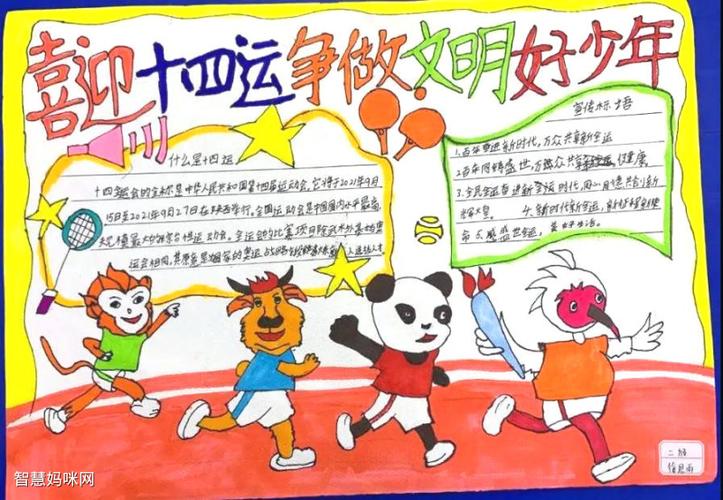 喜迎十四运争做文明好少年
什么是十四运
十四运会的全称是中华人民共和国第十四届运动会,它将于2021年9月
15日至2021年9月27日在陕西举行。全国运动会是中国国内水平最高
规模最大的综合性运动会。全运会的比赛项目除武术外基本与奥
运会相同,其原意是为国家的奥运
宣传标语
1.百年奋进新时代,万众共享新全运
2.百年同铸盛世,万众共享健康
3.全民全运奋进新时代,同心同德共创新
4.新时代新全运,新
生活。
二班
智慧妈咪网